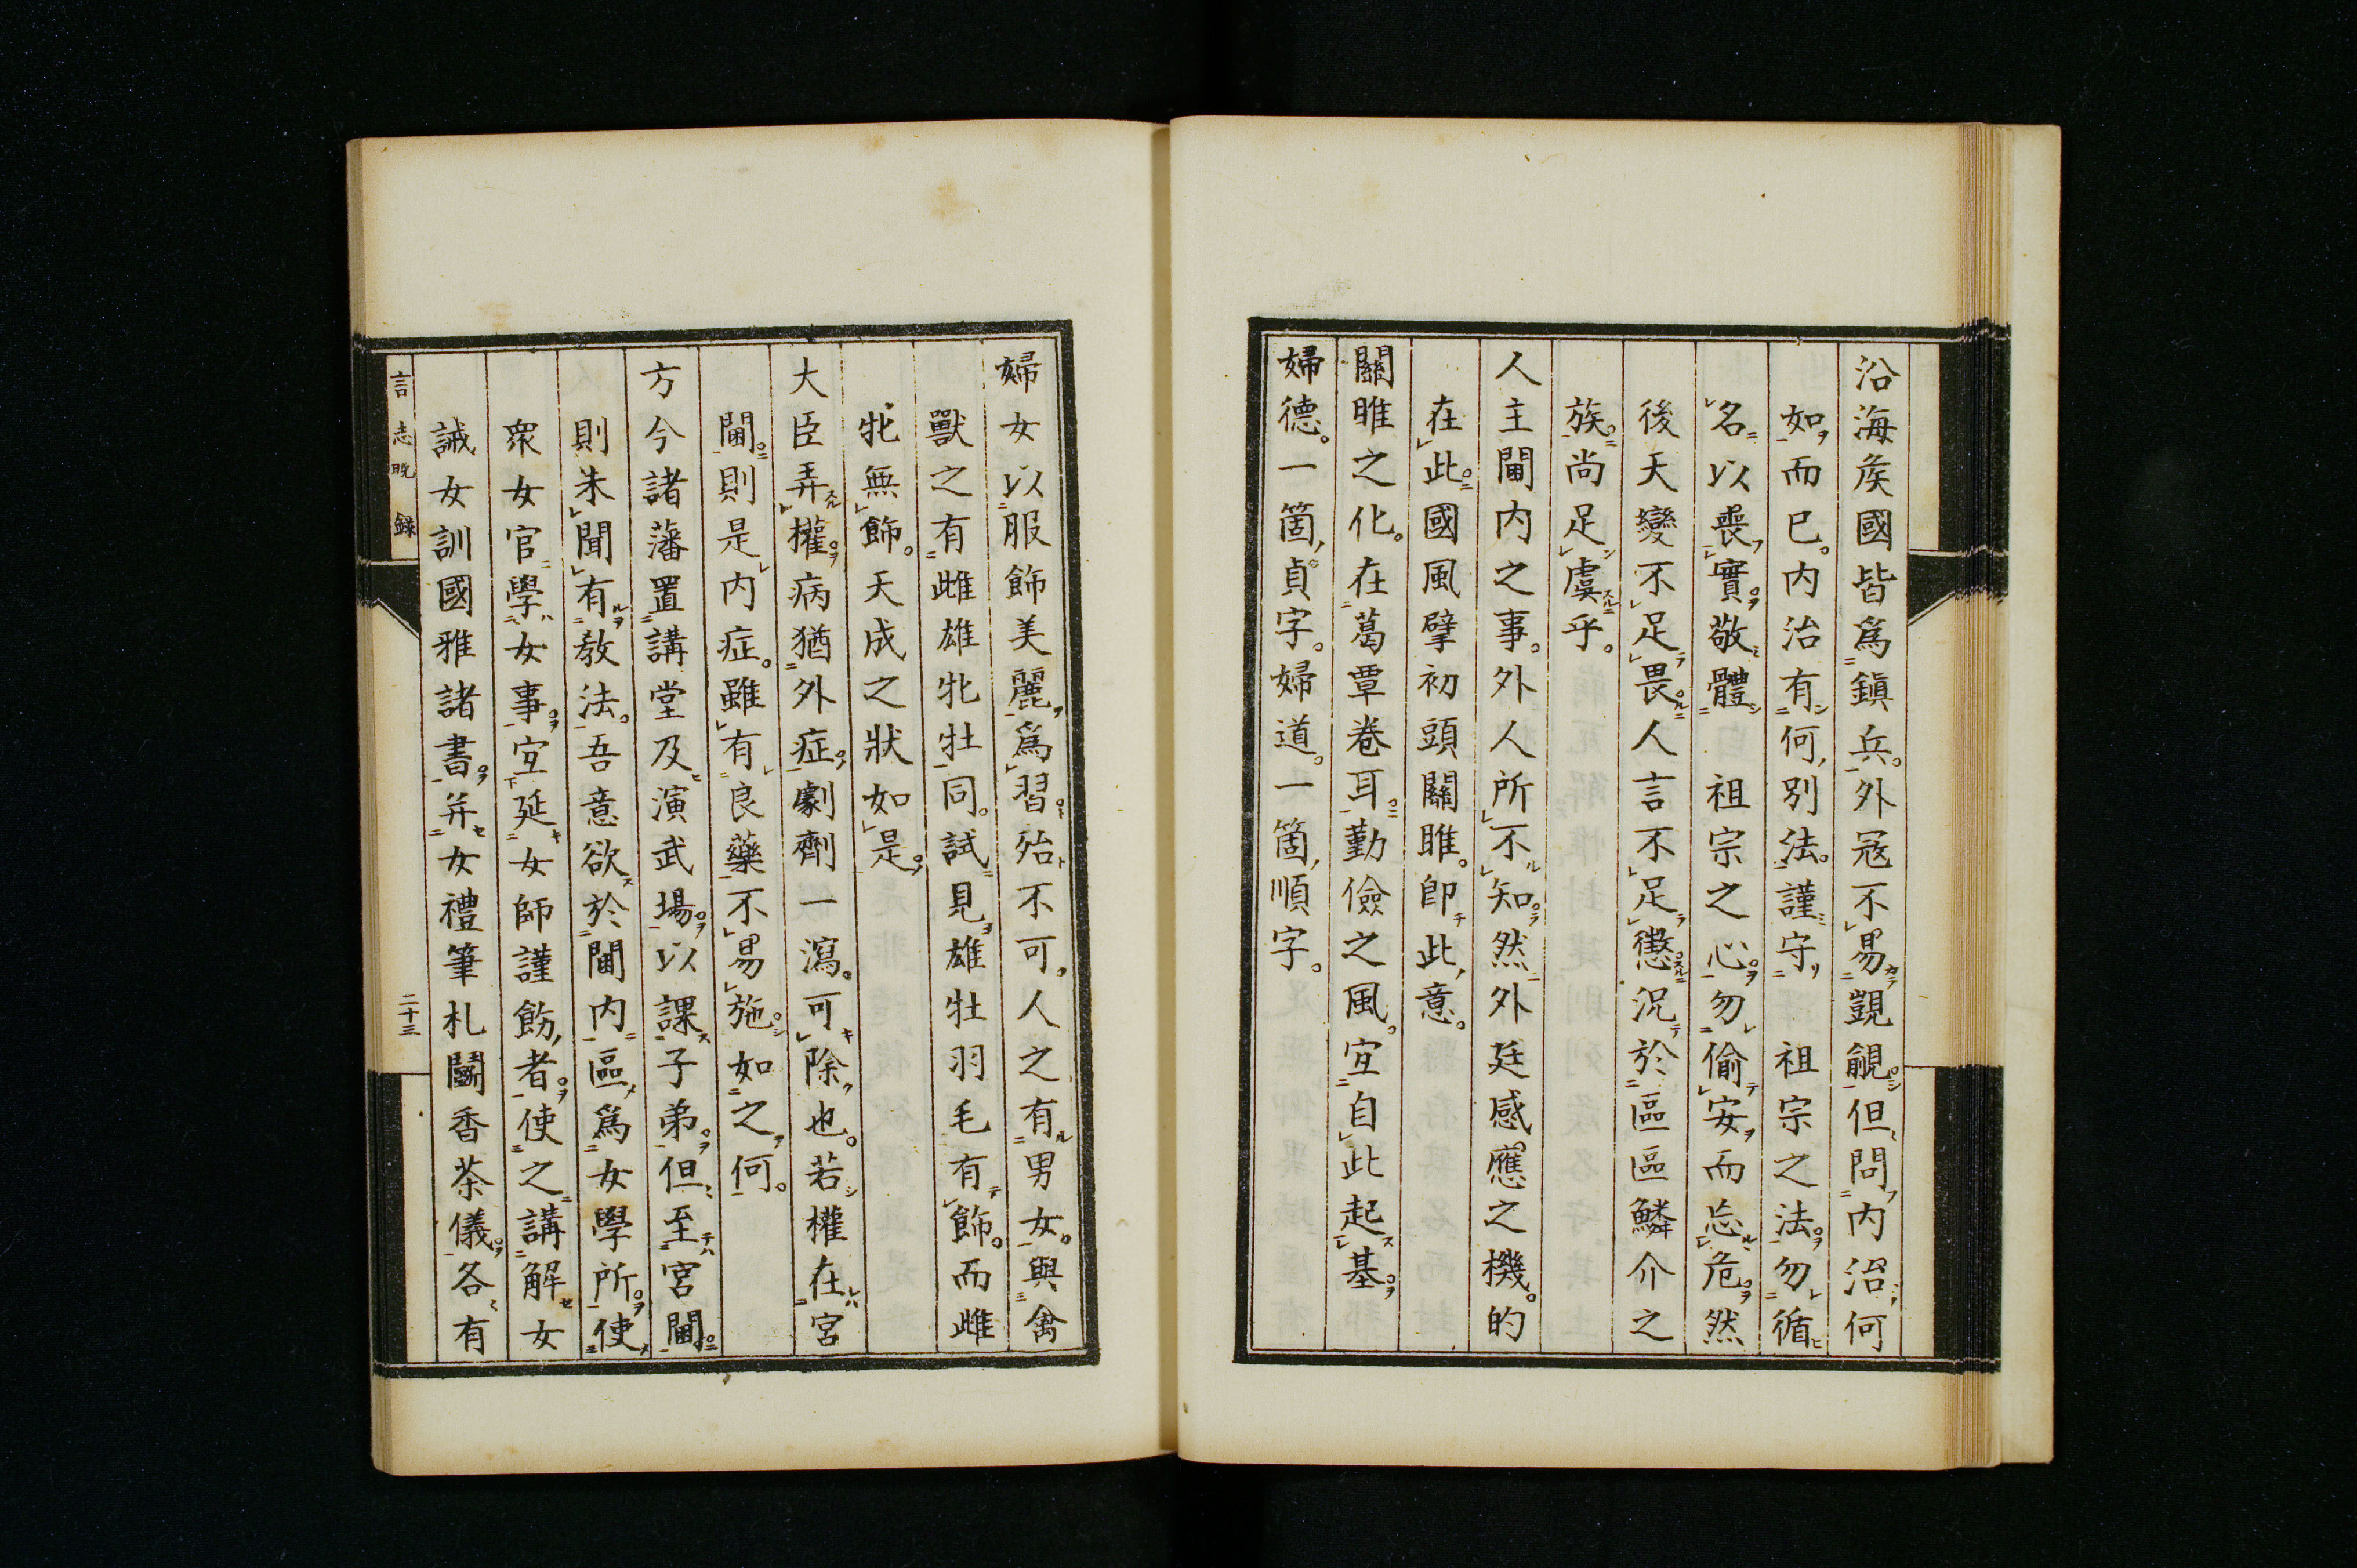 沿海矦國皆爲鎭兵。外冦不易覬覦。但問内治何
如而已。内治有何別法。謹守　祖宗之法。勿循
名以喪實。敬體　祖宗之心。勿偷安而忘危。然
後天變不足畏。人言不足懲。況於區區鱗介之
族。尚足虞乎。
人主閫内之事。外人所不知。然外廷感應之機。的
在此。國風擘初頭關雎。卽此意。
關雎之化。在葛覃卷耳。勤儉之風。宜自此起基。
婦德。一箇貞字。婦道。一箇順字。
婦女以服飾美麗爲習。殆不可。人之有男女。與禽
獸之有雌雄牝牡同。試見雄牡羽毛有飾。而雌
牝無飾。天成之狀如是。
大臣弄權。病猶外症。劇劑一瀉。可除也。若權在宮
閫。則是内症。雖有良藥。不易施。如之何。
方今諸藩置講堂及演武場。以課子弟。但至宮閫。
則未聞有教法。吾意欲於閫内區爲女學所。使
衆女官學女事。宜延女師謹飭者。使之講解女
誡女訓國雅諸書。并女禮筆札鬪香茶儀。各有
言志晩録
二十三